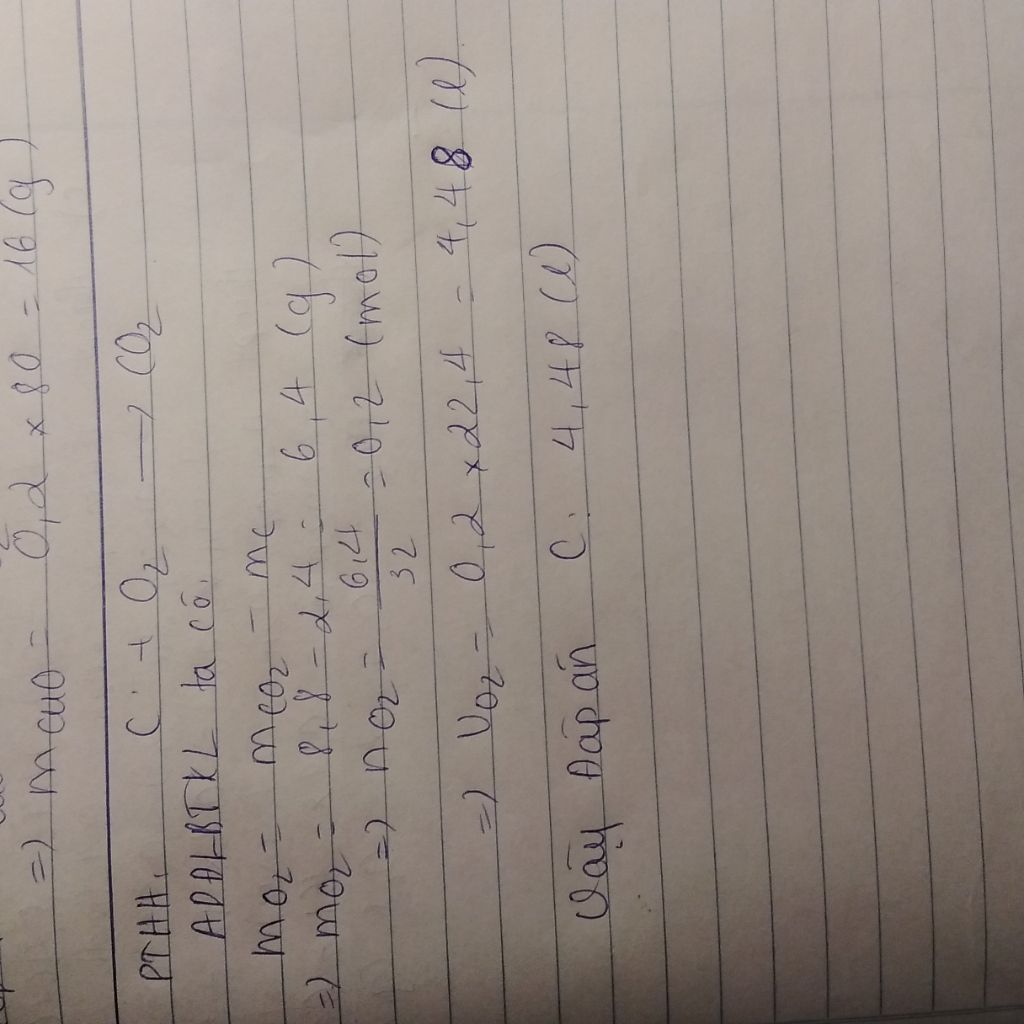 =) mCuO = 0,2 x 80 = 16 (g)
PTHH: C + O2 → CO2
ADĐLBTKL ta có:
mO2 = mCO2 - mC
=) mO2 = 8,8 - 2,4 = 6,4 (g)
=) nO2 = 6,4/32 = 0,2 (mol)
=) VO2 = 0,2 x 22,4 = 4,48 (l)
Vậy Đáp án C. 4,48 (l)